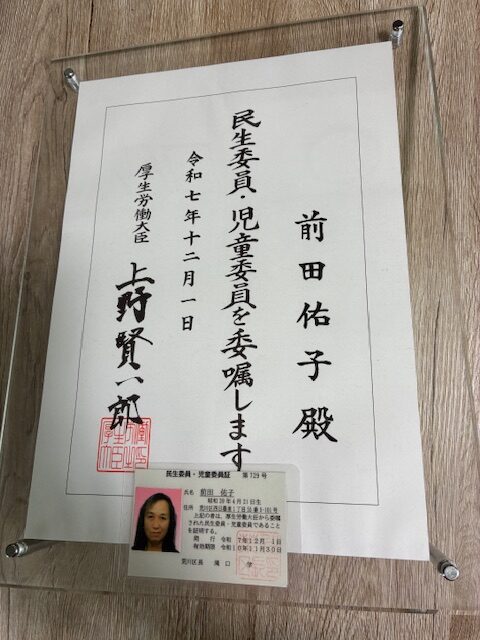 前田佑子殿
民生委員・児童委員を委嘱します
令和七年十二月一日
厚生労働大臣 上野賢一郎
民生委員・児童委員証 第729号
氏名 前田 佑子
昭和39年4月21日生
上記の者は、厚生労働大臣から委嘱
された民生委員・児童委員であること
を証明する。
発行 令和 7年12月 1日
有効期限 令和10年11月30日
荒川区長 滝口 学